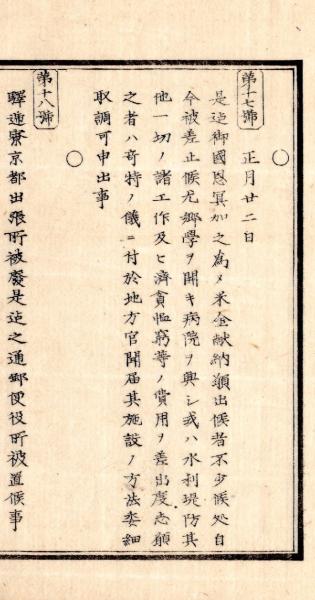 第十七號
正月廿二日
是迄御國恩冥加之爲メ米金献納願出候者不少候処自
今被差止候尤郷學ヲ開キ病院ヲ興シ或ハ水利堤防其
他一切ノ諸工作及ヒ濟貧恤窮等ノ費用ヲ差出度志願
之者ハ奇特ノ儀ニ付於地方官聞届其施設ノ方法委細
取調可申出事
第十八號
驛逓寮京都出張所被廢是迄之通郵便役所被置候事